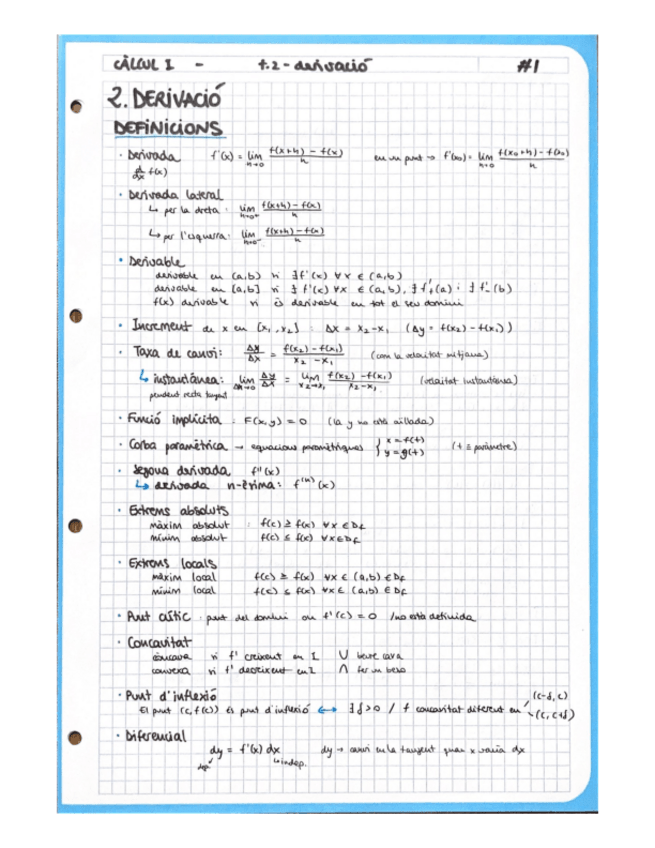 CÀLCUL I - t.2 - derivació #1
2. DERIVACIÓ
DEFINICIONS
· Derivada f'(x) = lim h→0 f(x+h) - f(x) / h en un punt → f'(x₀) = lim h→0 f(x₀+h) - f(x₀) / h
d/dx f(x)
· Derivada lateral
↳ per la dreta: lim h→0⁺ f(x+h) - f(x) / h
↳ per l'esquerra: lim h→0⁻ f(x+h) - f(x) / h
· Derivable
derivable en (a,b) si ∃ f'(x) ∀x ∈ (a,b)
derivable en [a,b] si ∃ f'(x) ∀x ∈ (a,b), ∃ f'₊(a) i ∃ f'₋(b)
f(x) derivable si és derivable en tot el seu domini
· Increment de x en [x₁, x₂] : Δx = x₂ - x₁ (Δy = f(x₂) - f(x₁))
· Taxa de canvi: Δy/Δx = f(x₂) - f(x₁) / x₂ - x₁ (com la velocitat mitjana)
↳ instantánea: lim Δx→0 Δy/Δx = lim x₂→x₁ f(x₂) - f(x₁) / x₂ - x₁ (velocitat instantánea)
pendent recta tangent
· Funció implícita : F(x,y) = 0 (la y no està aïllada)
· Corba paramètrica → equacions paramètriques { x = f(t)
y = g(t) (t ≡ paràmetre)
· Segona derivada f''(x)
↳ derivada n-èsima: f⁽ⁿ⁾(x)
· Extrems absoluts
màxim absolut : f(c) ≥ f(x) ∀x ∈ Df
mínim absolut f(c) ≤ f(x) ∀x ∈ Df
· Extrems locals
màxim local f(c) ≥ f(x) ∀x ∈ (a,b) ∈ Df
mínim local f(c) ≤ f(x) ∀x ∈ (a,b) ∈ Df
· Punt crític : punt del domini on f'(c) = 0 /no està definida
· Concavitat
còncava si f' creixent en I ∪ beure cava
convexa si f' decreixent en I ∩ fer un beso
· Punt d'inflexió (c-δ, c)
El punt (c, f(c)) és punt d'inflexió ↔ ∃ δ>0 / f concavitat diferent en (c, c+δ)
· Diferencial
dy = f'(x) dx dy → canvi en la tangent quan x varia dx
dep. ↳ indep.